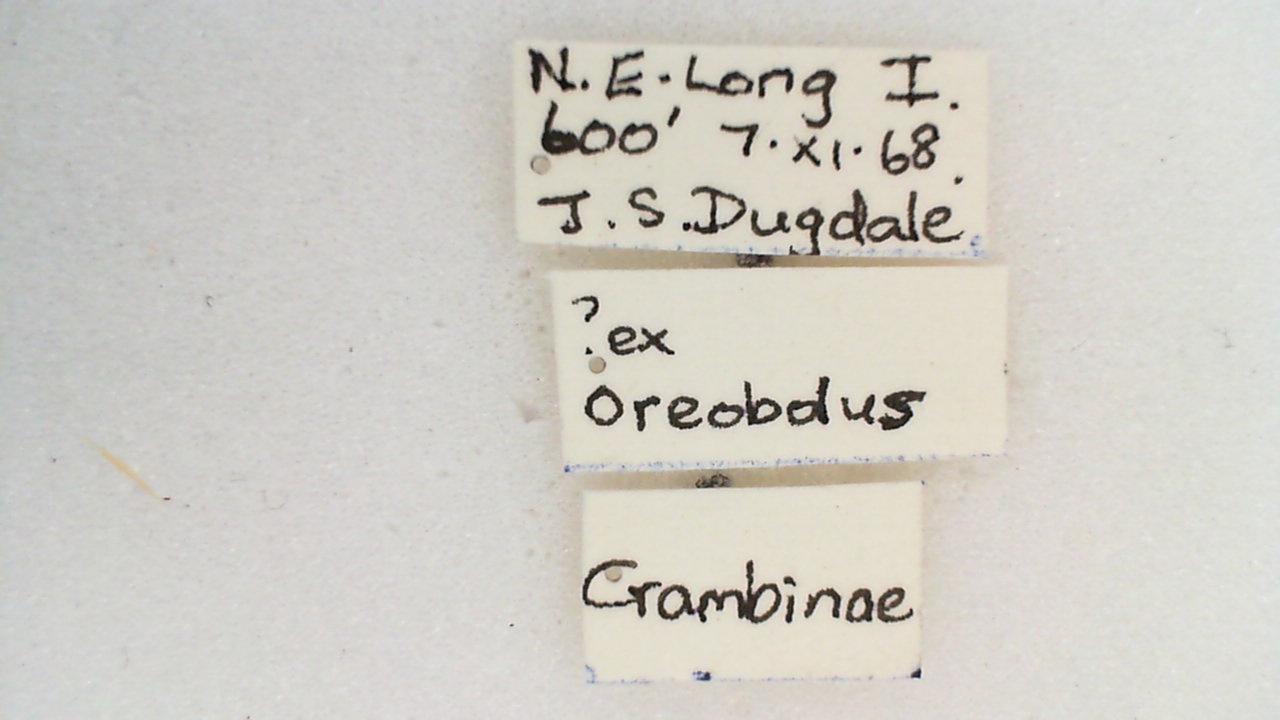 N. E. Long I.
600' 7. XI. 68.
J. S. Dugdale
? ex
Oreobolus
Crambinae